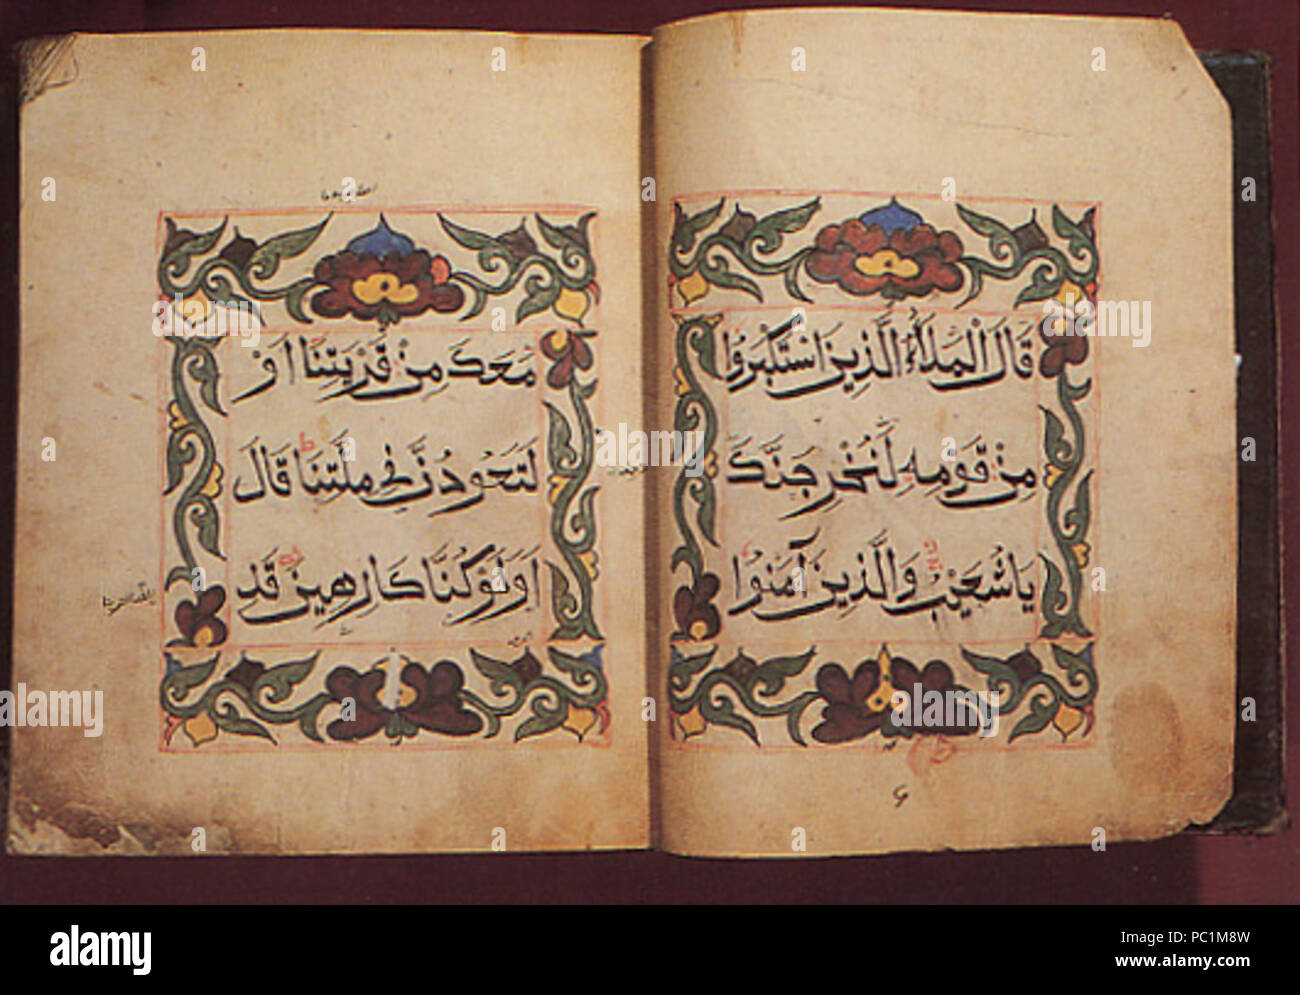 قَالَ الْمَلَأُ الَّذِينَ اسْتَكْبَرُوا
مِنْ قَوْمِهِ لَنُخْرِجَنَّكَ
يَاشُعَيْبُ وَالَّذِينَ آمَنُوا
مَعَكَ مِنْ قَرْيَتِنَا أَوْ
لَتَعُودُنَّ فِي مِلَّتِنَا قَالَ
أَوَلَوْ كُنَّا كَارِهِينَ قَدِ
a alamy stock photo
alamy stock photo
PC1M8W
www.alamy.com